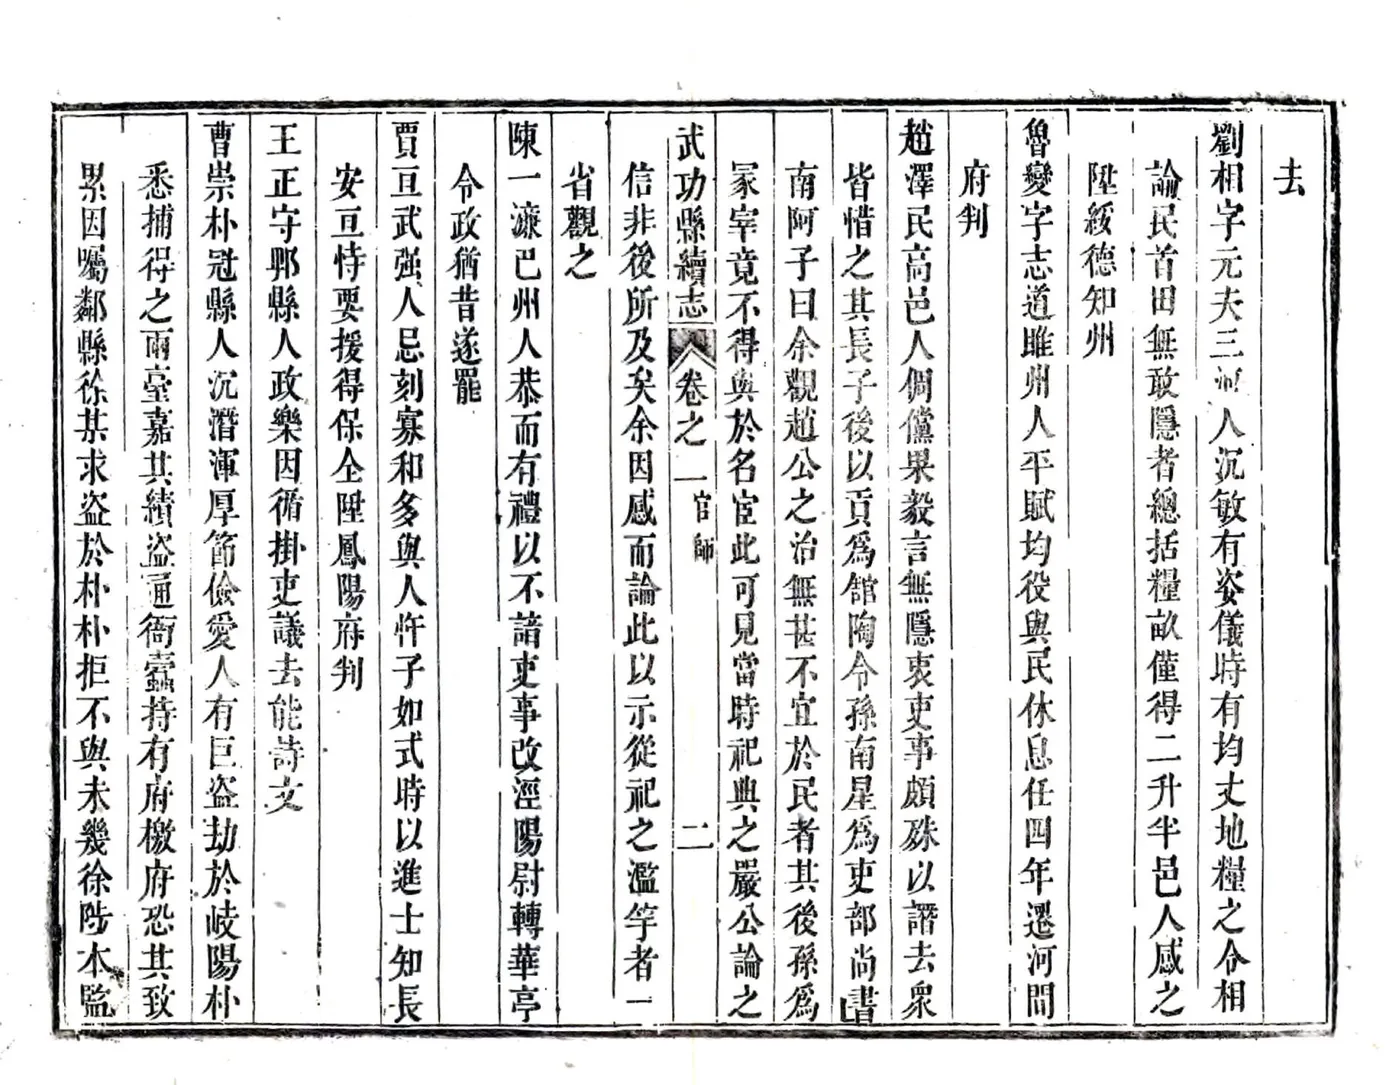 去
劉相字元夫三河人沉敏有姿儀時有均丈地糧之令相
論民首田無敢隱者總括糧畝僅得二升半邑人感之
陞綏德知州
魯變字志道雎州人平賦均役與民休息任四年遷河間
府判
趙澤民高邑人倜儻果毅言無隱衷吏事頗殊以譖去衆
皆惜之其長子後以貢爲館陶令孫南星爲吏部尚書
南阿子曰余觀趙公之治無甚不宜於民者其後孫爲
冢宰竟不得與於名宦此可見當時祀典之嚴公論之
武功縣續志 卷之一 官師 二
信非後所及矣余因感而論此以示從祀之濫竽者一
省觀之
陳一濂巴州人恭而有禮以不諳吏事改涇陽尉轉華亭
令政猶昔遂罷
賈亘武强人忌刻寡和多與人忤子如式時以進士知長
安亘恃要援得保全陞鳳陽府判
王正守鄆縣人政樂因循掛吏議去能詩文
曹崇朴冠縣人沉潛渾厚節儉愛人有巨盜劫於岐陽朴
悉捕得之兩臺嘉其績盜通衙蠹持有府檄府恐其致
累因囑鄰縣徐某求盜於朴朴拒不與未幾徐陟本監